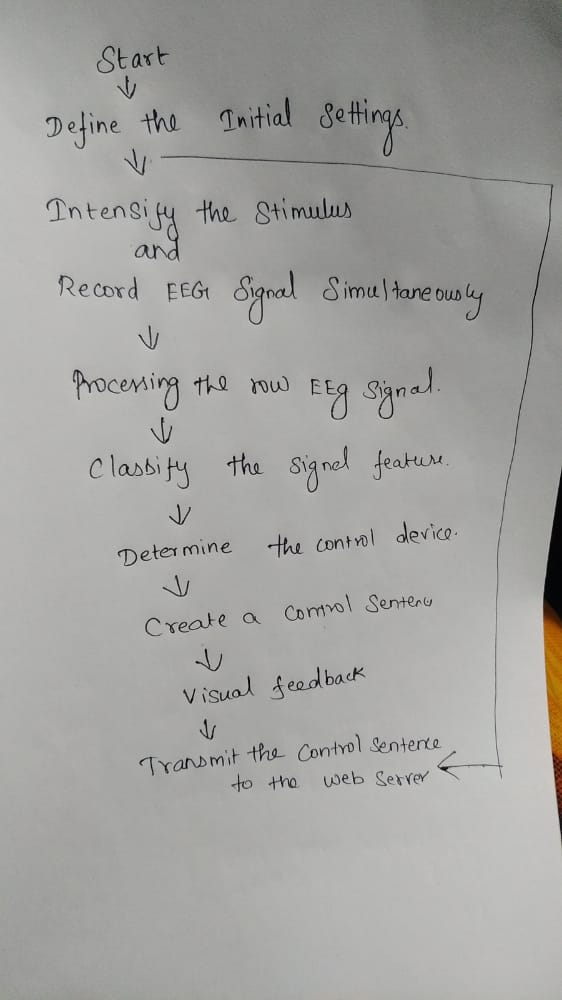 Start
Define the Initial Settings.
Intensify the Stimulus
and
Record EEG Signal Simultaneously
Processing the row EEg Signal.
Classify the signal feature.
Determine the control device.
Create a Control Sentence
Visual feedback
Transmit the Control Sentence
to the Web Server